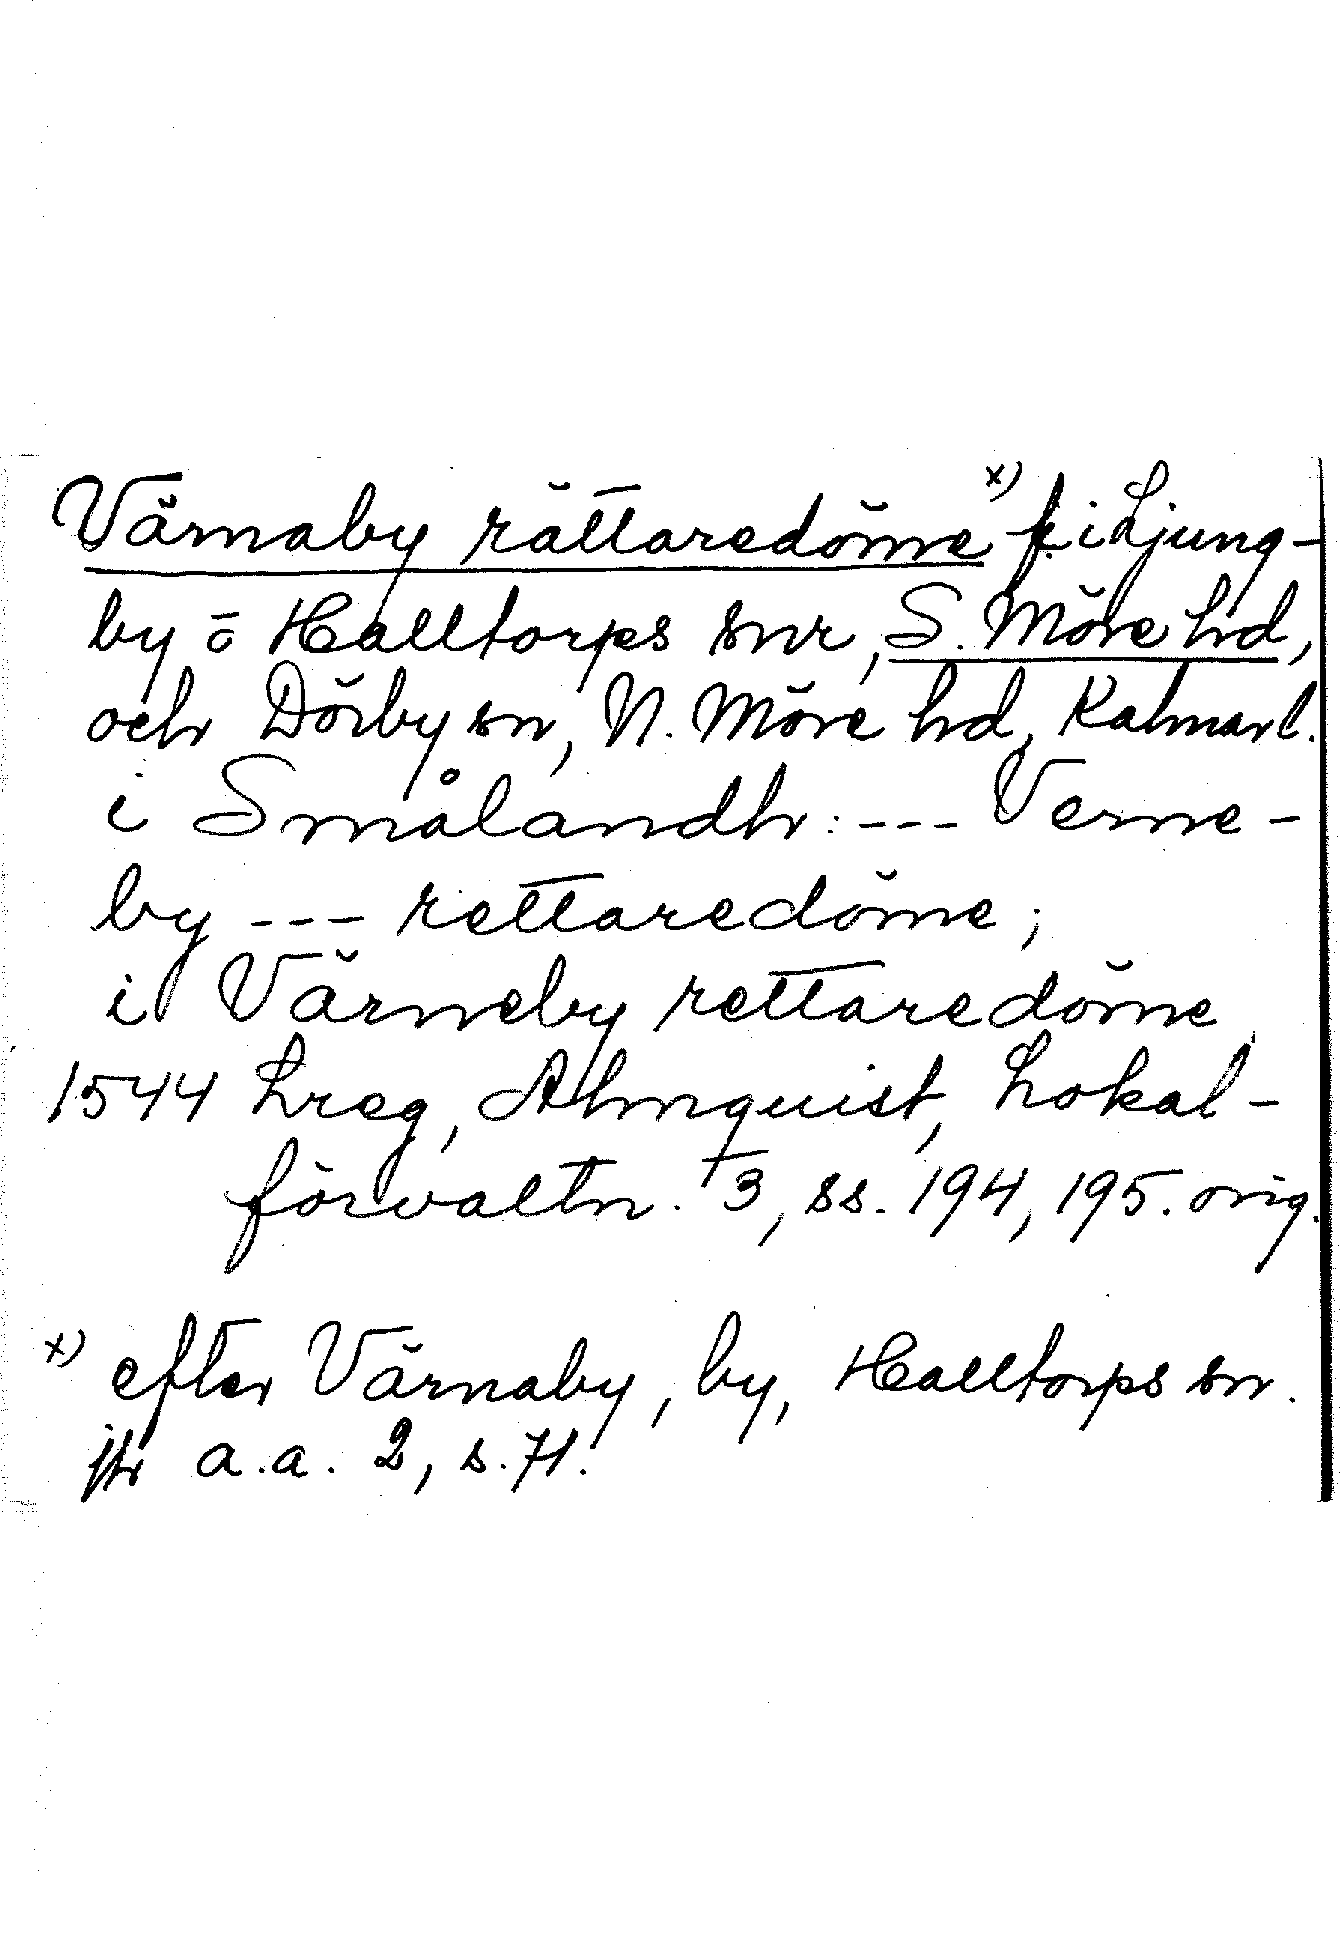 Värnaby rättaredöme x) f. i Ljung-
by o Halltorps snr, S. Möre hd,
och Dörby sn, N. Möre hd, Kalmarl.
i Smålandh : --- Verne-
by --- rettaredöme ;
i Värneby rettaredöme
1544 Lreg, Almquist, Lokal-
förvaltn. 3, ss. 194, 195. orig.
x) efter Värnaby, by, Halltorps sn.
jfr a.a. 2, s. 71.